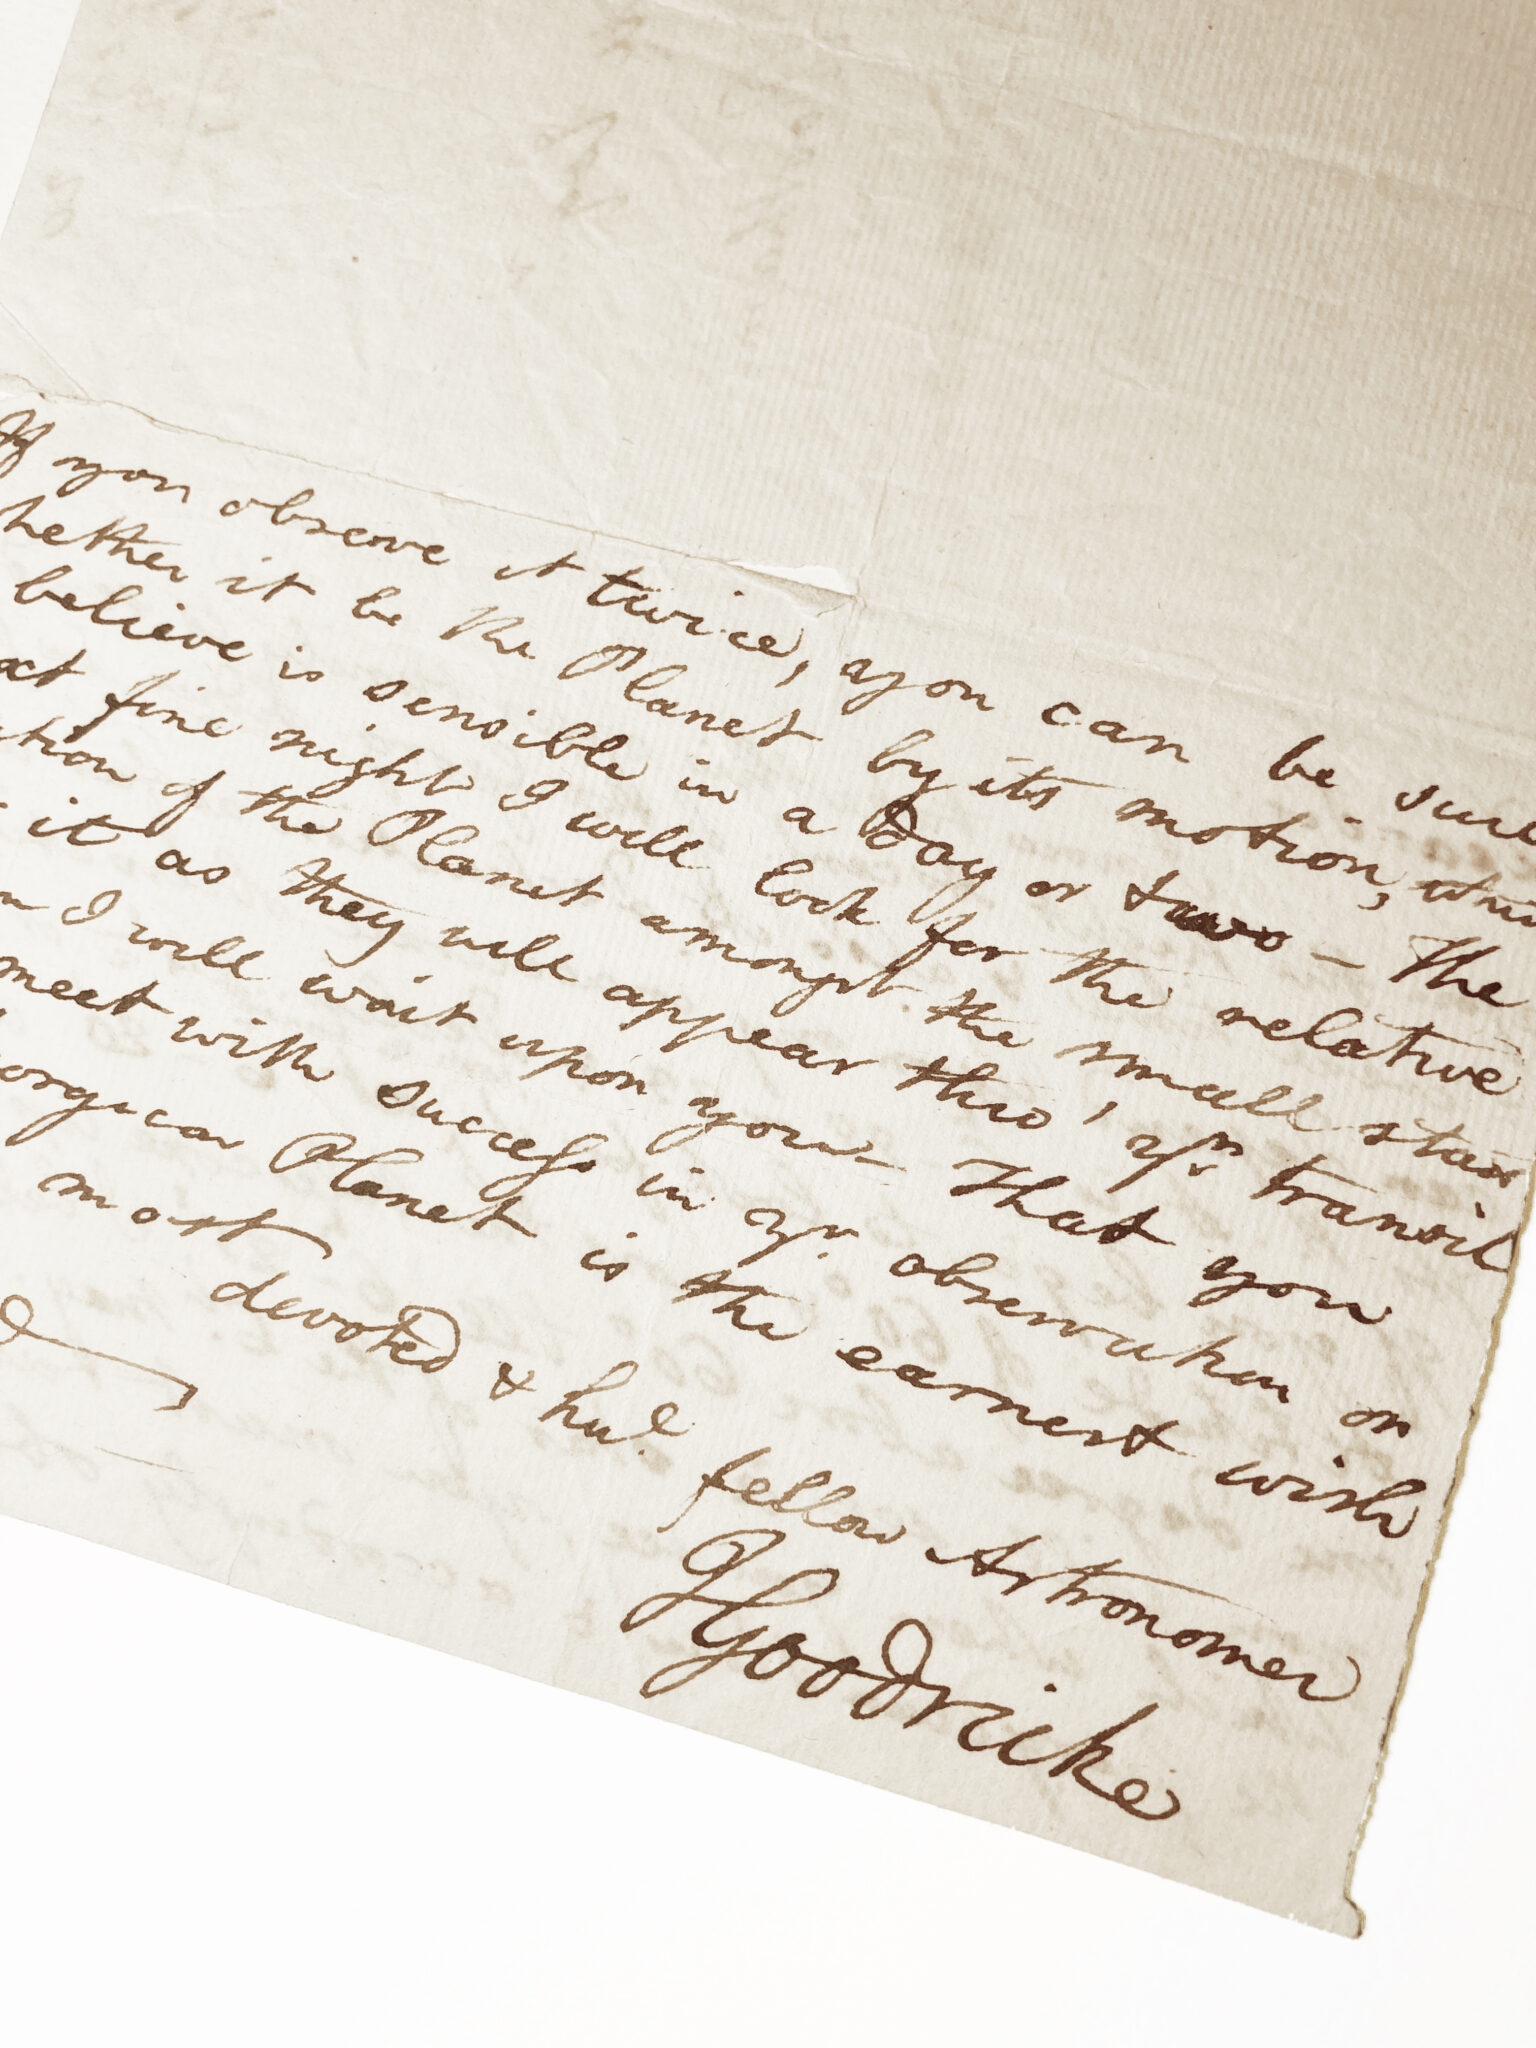 If you observe it twice, you can be sure
hether it be the Planet by its motion, whi
believe is sensible in a Day or two – The
xt fine night I will look for the relative
ation of the Planet amongst the small stars
it as they will appear thro' yr. transit
n I will wait upon you – That you
meet with success in yr. observation on
orgian Planet is the earnest wish
most devoted & hul. fellow Astronomer
JGoodricke